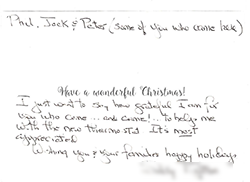 Phil, Jack & Peter (some of you who came back)
Have a wonderful Christmas!
I just want to say how grateful I am for
you who came... and came!... to help me
with the new thermostat. It's most
appreciated
Wishing you & your families happy holidays